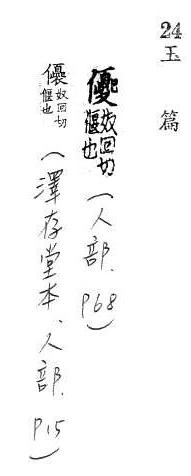 24
玉篇
奴回切
偃也
(人部. P68)
奴回切
偃也
(澤存堂本、人部. P.15)